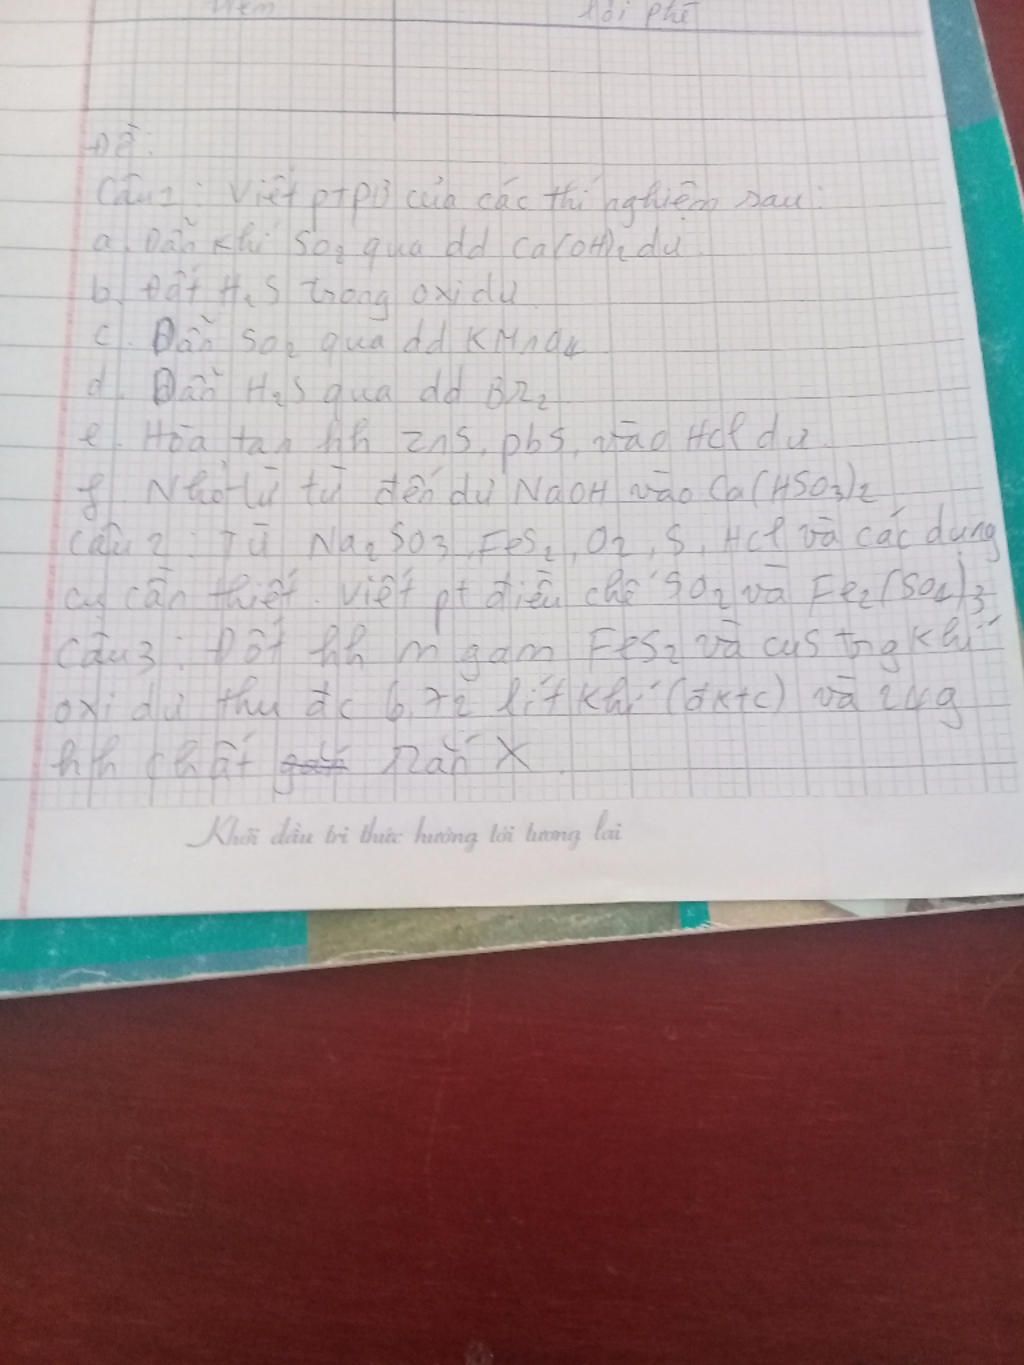 Điểm
Lời phê
Đề:
Câu 1: Viết ptpứ của các thí nghiệm sau:
a. Dẫn khí SO2 qua dd Ca(OH)2 dư
b. Đốt H2S trong oxi dư
c. Dẫn SO2 qua dd KMnO4
d. Dẫn H2S qua dd Br2
e. Hòa tan hh ZnS, pbS, vào HCl dư
f. Nhỏ từ từ đến dư NaOH vào Ca(HSO3)2
Câu 2: Từ Na2SO3, FeS2, O2, S, HCl và các dụng
cụ cần thiết. Viết pt điều chế SO2 và Fe2(SO4)3
Câu 3: Đốt hh m gam FeS2 và CuS trg khí
oxi dư thu đc 6,72 lít khí (đktc) và 24g
hh chất rắn X
Khơi dầu tri thức hướng tới tương lai